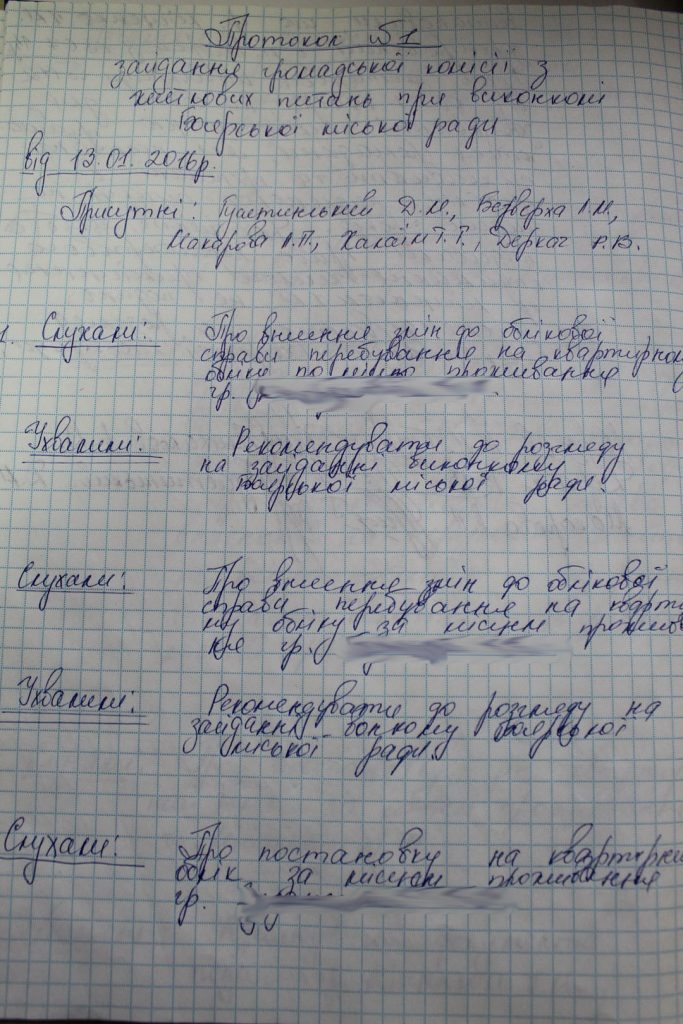 Протокол №1
засідання громадської комісії з
житлових питань при виконкомі
Боярської міської ради
від 13.01.2016р.
Присутні: Д.М., Безверха Л.М.,
Макарова Л.П., Халаїм Т.Г., Деркач Р.В.
1. Слухали: Про внесення змін до облікової
справи перебування на квартирном
обліку по місцю проживання
гр.
Ухвалили: Рекомендувати до розгляду
на засіданні виконкому
Боярської міської ради.
Слухали: Про внесення змін до облікової
справи перебування на кварти
му обліку за місцем прожив
ня гр.
Ухвалили: Рекомендувати до розгляду на
засіданні Боярської
міської ради.
Слухали: Про постановку на квартирн
облік за місцем проживання
гр.